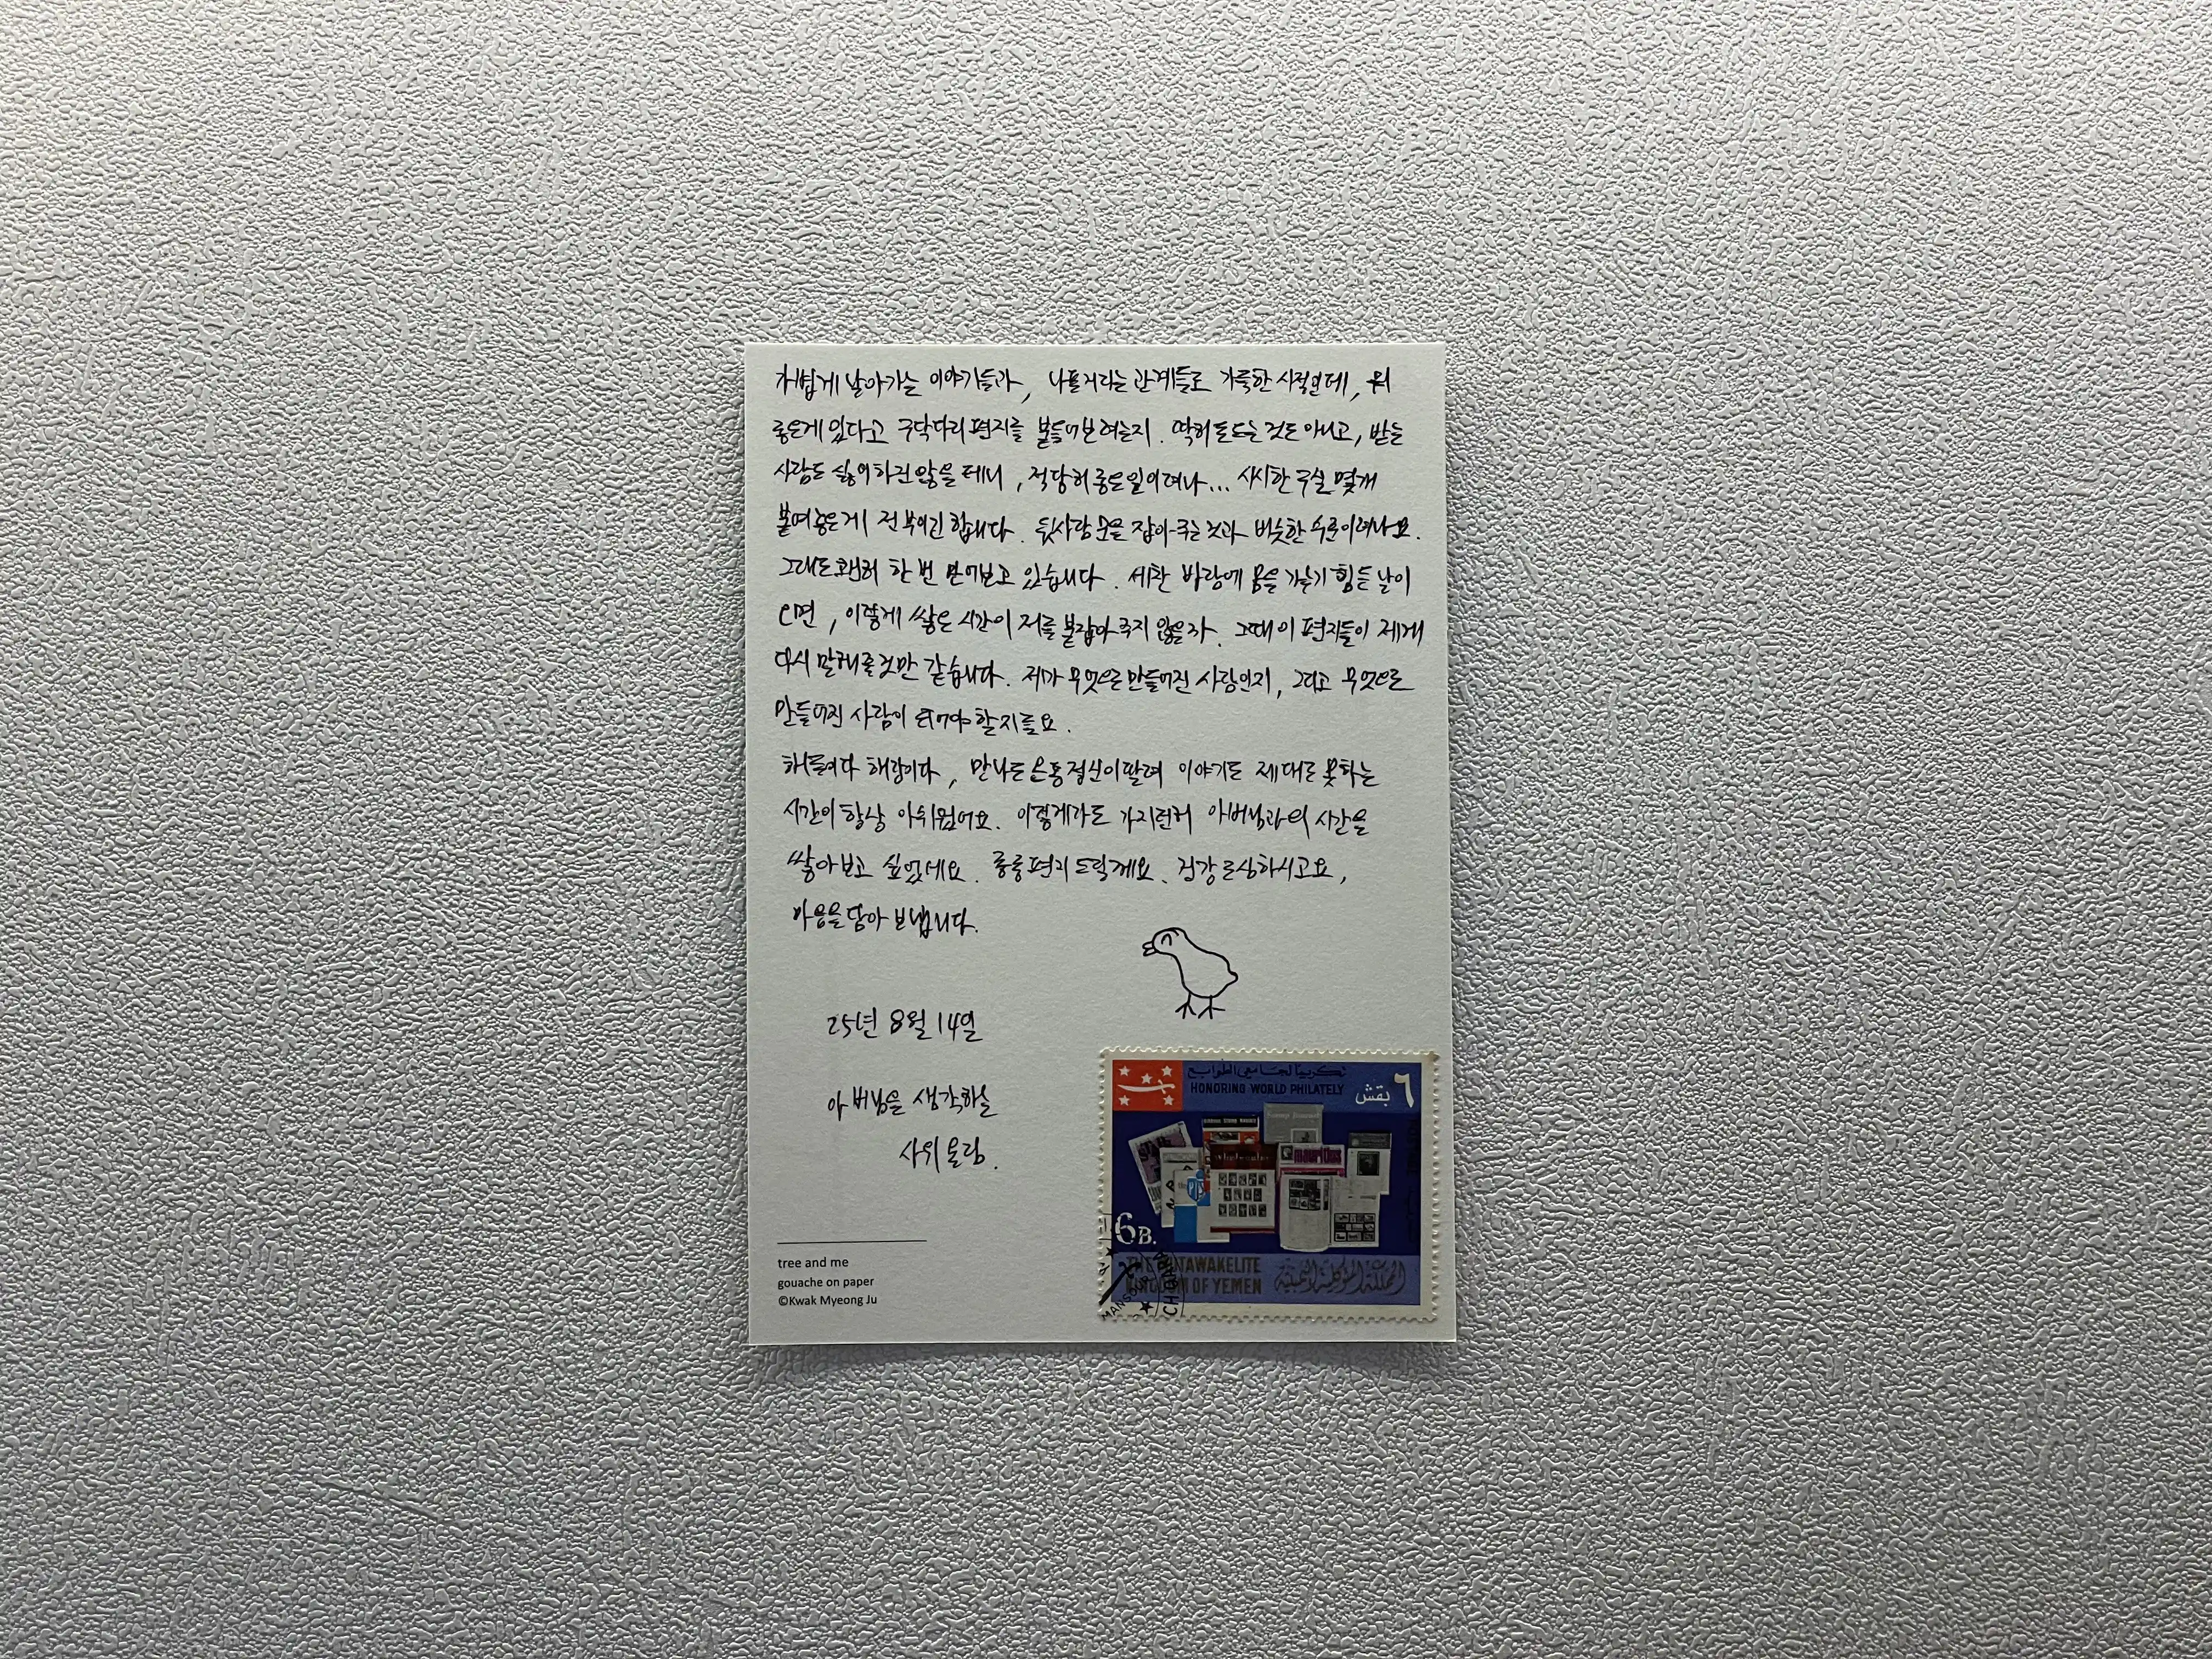 가볍게 날아가는 이야기들과, 나풀거리는 관계들로 가득한 시절인데, 뭐
좋은게 있다고 구닥다리 편지를 붙들어보려는지. 딱히 돈 드는 것도 아니고, 받는
사람도 싫어하진 않을 테니, 적당히 좋은 일이려나... 시시한 구실 몇개
붙여놓은게 전부이긴 합니다. 뒷사람 문을 잡아주는 것과 비슷한 수준이려나요.
그래도 괜히 한 번 믿어보고 있습니다. 세찬 바람에 몸을 가누기 힘든 날이
오면, 이렇게 쌓은 시간이 저를 붙잡아 주지 않을까. 그때 이 편지들이 제게
다시 말해줄 것만 같습니다. 제가 무엇으로 만들어진 사람인지, 그리고 무엇으로
만들어진 사람이 되어야 할지를요.
해들이다 해랑이다, 만나도 온통 정신이 팔려 이야기도 제대로 못하는
시간이 항상 아쉬웠어요. 이렇게라도 가지런히 아버님과의 시간을
쌓아보고 싶었네요. 종종 편지 드릴게요. 건강 조심하시고요,
마음을 담아 보냅니다.
25년 8월 14일
아버님을 생각하는
사위 올림.
تكريما لجامعي الطوابع
HONORING WORLD PHILATELY
٦ بقش
mauritius
6B.
THE MUTAWAKELITE
KINGDOM OF YEMEN
المملكة المتوكلية اليمنية
tree and me
gouache on paper
©Kwak Myeong Ju